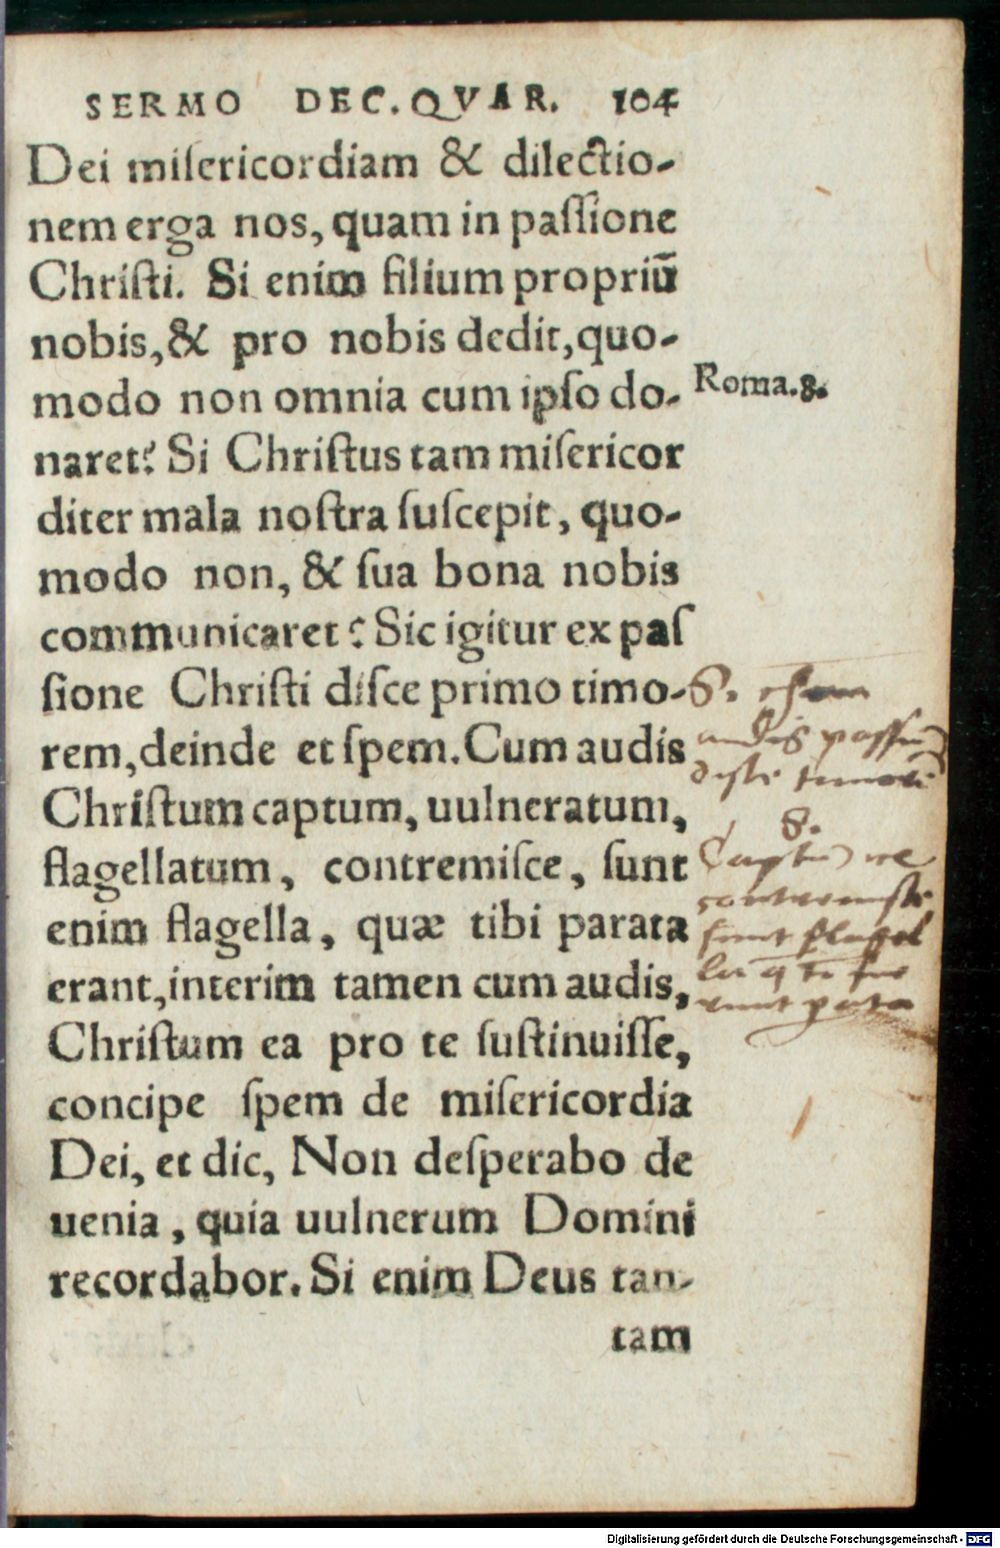 SERMO DEC. QVAR. 104
Dei miſericordiam & dilectio-
nem erga nos, quam in paſſione
Chriſti. Si enim filium propriū
nobis, & pro nobis dedit, quo-
modo non omnia cum ipſo do-
Roma.8.
naret? Si Chriſtus tam miſericor
diter mala noſtra ſuſcepit, quo-
modo non, & ſua bona nobis
communicaret? Sic igitur ex paſ
ſione Chriſti diſce primo timo-
rem, deinde et ſpem. Cum audis
Chriſtum captum, uulneratum,
flagellatum, contremiſce, ſunt
enim flagella, quæ tibi parata
erant, interim tamen cum audis,
Chriſtum ea pro te ſuſtinuiſſe,
concipe ſpem de miſericordia
Dei, et dic, Non deſperabo de
uenia, quia uulnerum Domini
recordabor. Si enim Deus tan-
tam
S.
audis
S.
ſunt flagel
Digitalisierung gefördert durch die Deutsche Forschungsgemeinschaft - DFG